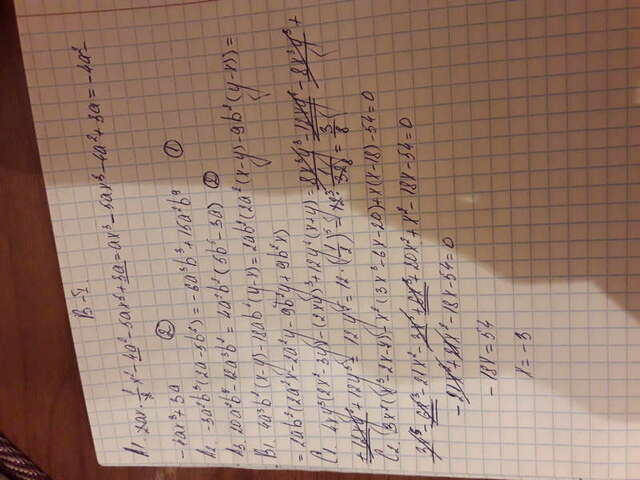 В-I.
А1. 2ax·1/2x²-4a²-5ax³+3a=ax³-5ax³-4a²+3a=-4a²-
-4ax³+3a ②
А2. -3a²b²(2a-5b²)=-6a³b³+15a²b⁹ ①
А3. 20a²b⁴-12a³b²=4a²b²(5b²-3a) ②
В1. 4a³b²(x-y)-18ab⁴(y-x)=2ab²(2a²(x-y)-9b²(y-x))=
=2ab²(2a²x-2a²y-9b²y+9b²x)
С1. 4xy³(2x²-3y)-(2xy)³+12y⁴(x+y)=8x³y³-12xy⁴-8x³y³+
+12xy⁴+12y⁵=12y⁵=12·(1/2)⁵=12·1/32=3/8
С2. 3x²(x³-2x-7)-x²(3x³-6x-20)+x(x-18)-54=0
3x⁵-6x³-21x²-3x⁵+6x³+20x²+x²-18x-54=0
-21x²+21x²-18x-54=0
-18x=54
x=-3